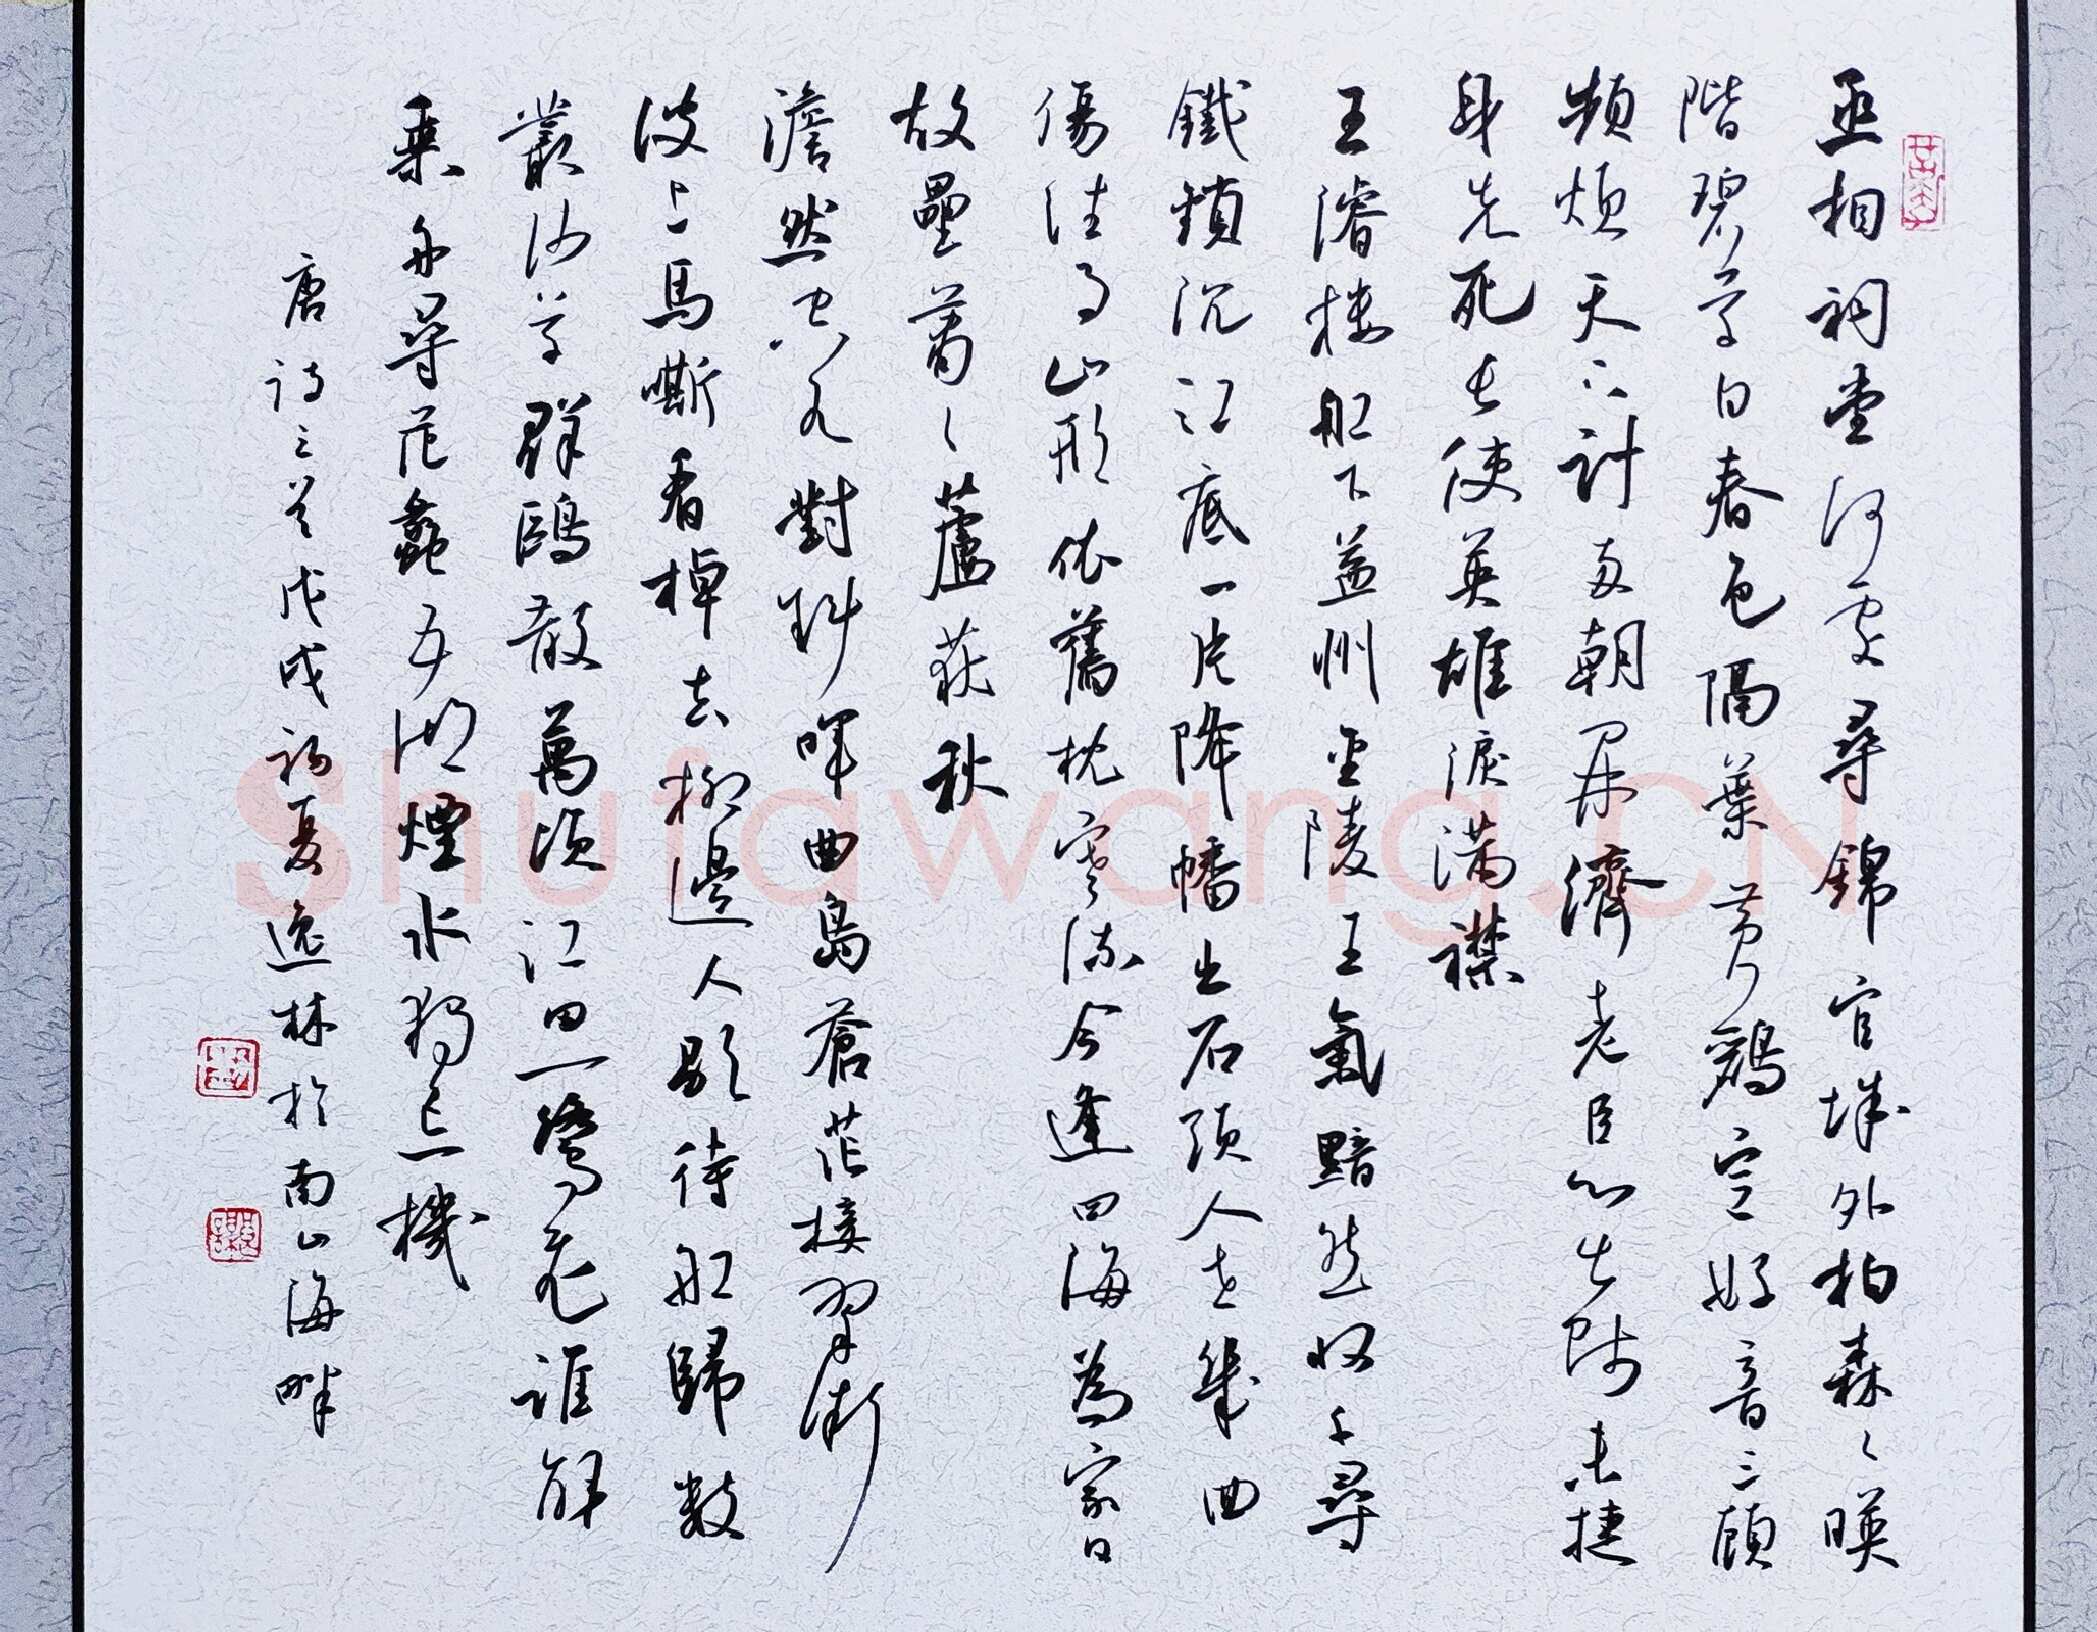 丞相祠堂何處尋錦官城外柏森々暎
階碧草自春色隔葉黃鸝空好音三顧
頻煩天下計兩朝開濟老臣心出師未捷
身先死長使英雄淚滿襟
王濬樓船下益州金陵王氣黯然收千尋
鐵鎖沉江底一片降幡出石頭人世幾回
傷往事山形依舊枕寒流今逢四海為家日
故壘蕭々蘆荻秋
澹然空水對斜暉曲島蒼茫接翠微
波上馬嘶看棹去柳邊人歇待船歸數
叢沙草群鷗散萬頃江田一鷺飛誰解
乘舟尋范蠡五湖煙水獨忘機
唐詩三首戊戌初夏逸林於南山海畔
Shufawang.CN